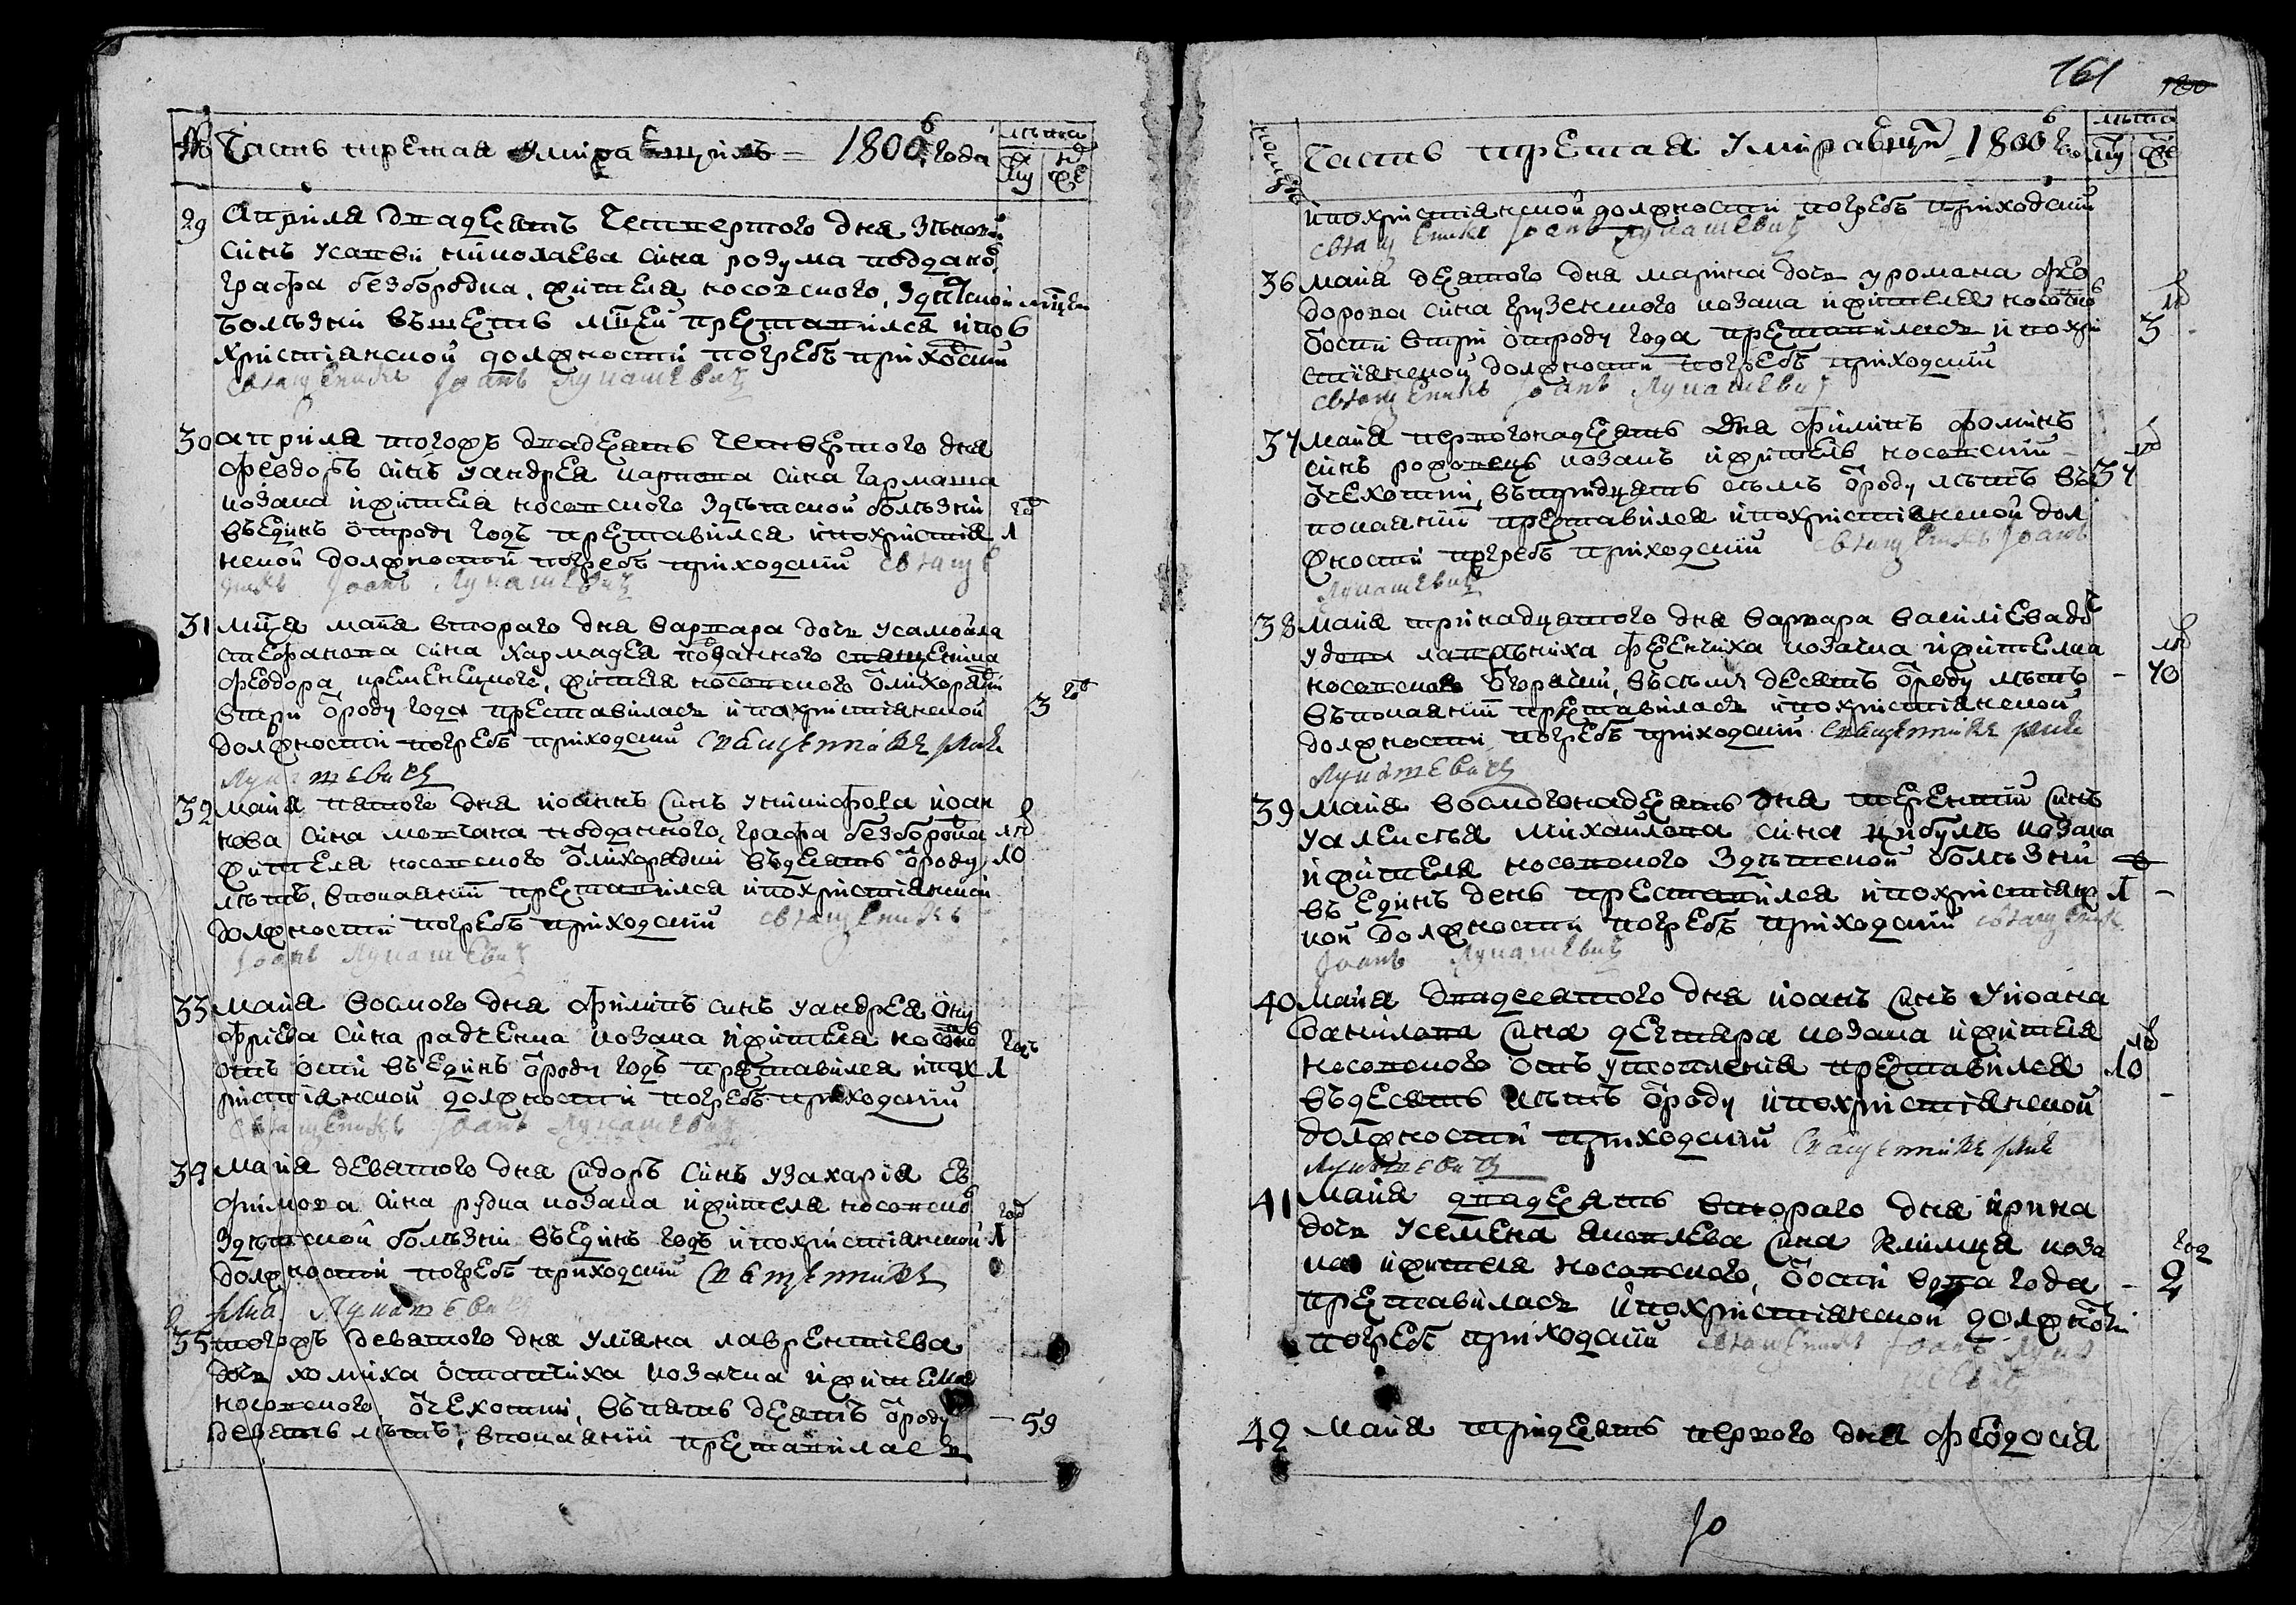 № Часть третая Умиравшихъ = 1806 года
лѣта
му же
29 Апрѣля двадесять четвертого дня Зѣновій
синъ усавви нѣколаева сина розума подданого
графа безбородка, жителя носовского, здѣтской мѣцей
болѣзнѣ въшесть мцей преставился ипо
христіянской должности погребъ приходскій
священикъ Іоанъ Лукашевич
30 априля тогожъ двадесять четвертого дня
феодоръ синъ уандрея карпова сина гармаша
козака ижителя носовского здѣтской болѣзнѣ год
въединъ отроду годъ преставился ипохристія 1
нской должности погребъ приходскій священ
никъ Іоанъ Лукашевич
31 мца маія второго дня варвара дочь усамойла
стефанова сина хармадея подданного священика
феодора кременецкого, жителя носовского отлихорадки
втри отроду года преставилась ипохристіянской 3 год
должности погребъ приходскій Священникъ Іоанъ
Лукашевичъ
32 маія пятого дня иоаннъ Синъ уникифора иоан
нова сина мовчана подданного, графа безбородка лѣ
жителя носовского отлихорадки вдесять отроду 10
лѣтъ, впокаяніи преставился ипохристіянской
должности погребъ приходскій священикъ
Іоанъ Лукашевич
33 маія восмого дня филипъ синъ уандрея ону
фріева сина радченка козака ижителя носовско годъ
отъ оспи въединъ отроду годъ преставился ипох 1
ристіянской должности погребъ приходскій
священикъ Іоанъ Лукашевич
34 маія девятого дня Сидоръ Синъ узахарія ев
фимова сина рудка козака ижителя носовско год
здѣтской болѣзнѣ въединъ годъ ипохристіянской 1
должности погребъ приходскій Священникъ
Іоанъ Лукашевичъ
35 тогожъ девятого дня уліяна лаврентіева
дочь хомиха остапчиха козачка ижителка
носовского отчехотки, въпять десятъ отроду — 59
девять лѣтъ, впокаяніи преставилась
161
Часть третая Умиравшихъ 1806 год
лѣта
му же
ипохристіянской должности погребъ приходскій
священикъ Іоанъ Лукашевич
36 маія десятого дня марина дочь уромана фео
дорова сина грузенского козака ижителя носовско лѣ
отоспи втри отроду года преставилась ипохри 3
стіянской должности погребъ приходскій
священикъ Іоанъ Лукашевич
37 маія первогонадесять дня филипъ фоминъ
синъ роженець козакъ ижитель носовскій лѣ
отчехотки, въпридцять семъ отроду лѣтъ въ 37
покаяніи преставился ипохристіянской дол
жности погребъ приходскій священикъ Іоанъ
Лукашевич
38 маія тринадцятого дня варвара василіева до
удови лавровниха феенчиха козачка ижителка лѣ
носовская отгорячки, въсемъ десятъ отроду лѣтъ - 70
въпокаяніи преставилась ипохристіянской
должности погребъ приходскій Священникъ Іоанъ
Лукашевичъ
39 маія восмогонадесять дня терентій Синъ
уалексѣя михайлова сина цибулѣ козака
ижителя носовского здѣтской болѣзнѣ
въ единъ день преставился ипохристіян 1 -
ской должности погребъ приходскій священикъ
Іоанъ Лукашевич
40 маія двадесятого дня иоанъ Синъ уиоана
данилова Сина дегтяра козака ижителя лѣ
носовского отъ утопленія преставился 10
въдесять лѣтъ отроду ипохристіянской -
должности приходскій Священникъ Іоанъ
Лукашевичъ
41 Маія двадесять второго дня ирина
дочь усемена яковлева Сина Климця коза год
ка ижителя носовского, отоспи вдва года - 2
преставилась ипохристіянской должности
погребъ приходскій священикъ Іоанъ Лука
шевич
42 маія тридесять первого дня феодосія